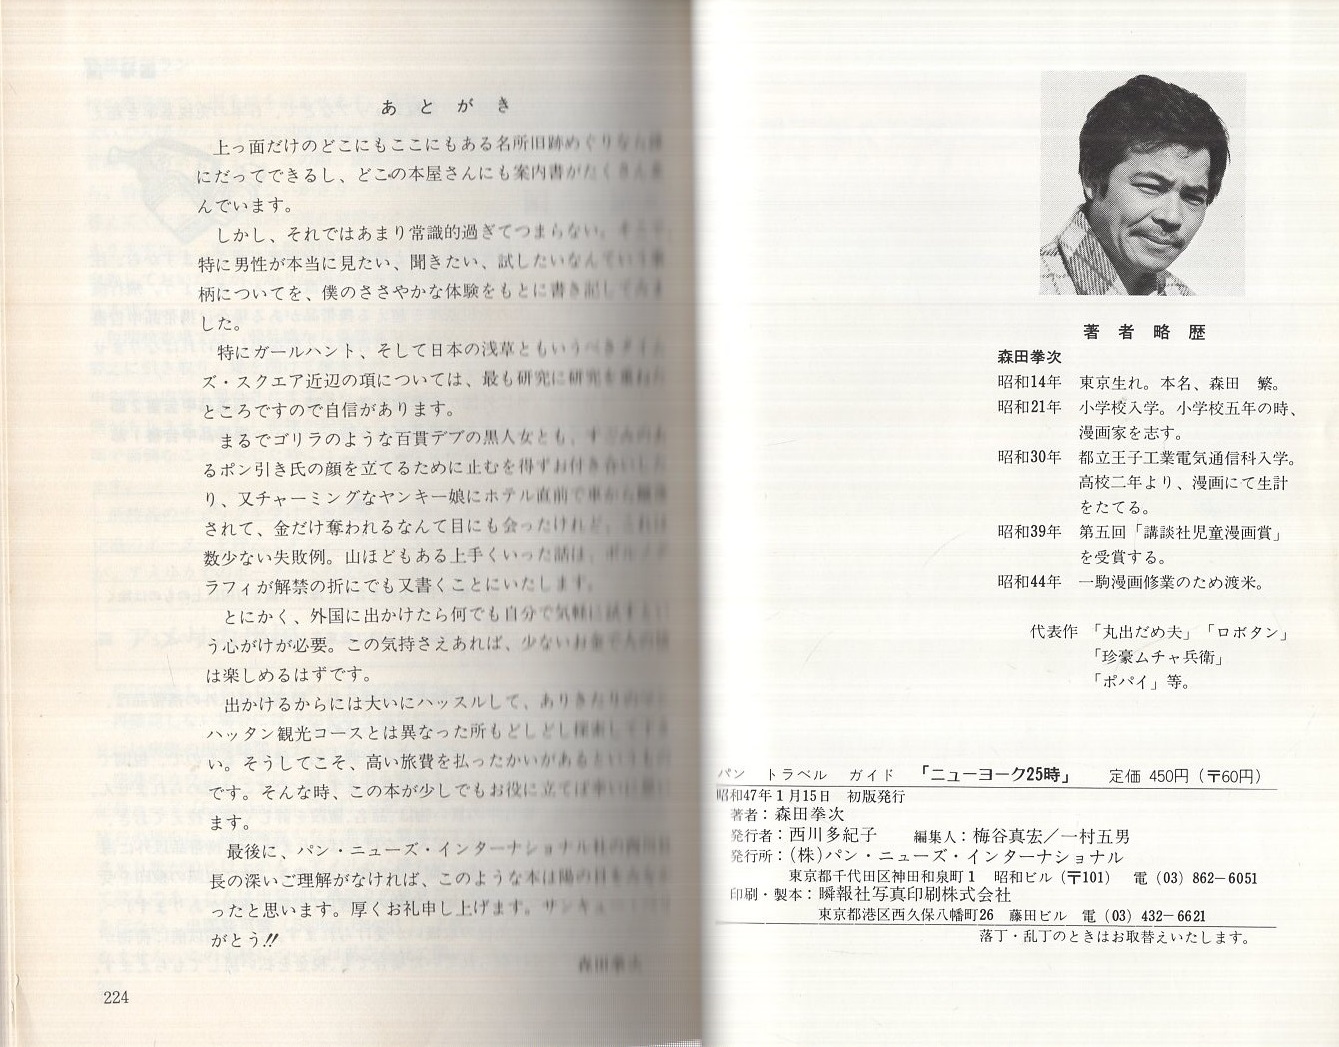 あとがき
上っ面だけのどこにもここにもある名所旧跡めぐりなら
にだってできるし、どこの本屋さんにも案内書がたくさん
んでいます。
しかし、それではあまり常識的過ぎてつまらない。
特に男性が本当に見たい、聞きたい、試したいなんていう
柄についてを、僕のささやかな体験をもとに書き記してみま
した。
特にガールハント、そして日本の浅草ともいうべきタイム
ズ・スクエア近辺の項については、最も研究に研究を重ねた
ところですので自信があります。
まるでゴリラのような百貫デブの黒人女とも、
るポン引き氏の顔を立てるために止むを得ずお付き合いした
り、又チャーミングなヤンキー娘にホテル直前で車から
されて、金だけ奪われるなんて目にも会ったけれど、これは
数少ない失敗例。山ほどもある上手くいった話は、ポルノグ
ラフィが解禁の折にでも又書くことにいたします。
とにかく、外国に出かけたら何でも自分で気軽に試すとい
う心がけが必要。この気持さえあれば、少ないお金で人の倍
は楽しめるはずです。
出かけるからには大いにハッスルして、ありきたりのマン
ハッタン観光コースとは異なった所もどしどし探索して下さ
い。そうしてこそ、高い旅費を払ったかいがあるというもの
です。そんな時、この本が少しでもお役に立てば幸いに思い
ます。
最後に、パン・ニューズ・インターナショナル社の西川社
長の深いご理解がなければ、このような本は陽の目をみなか
ったと思います。厚くお礼申し上げます。サンキュー
がとう!!
森田拳次
224
著者略歴
森田拳次
昭和14年 東京生れ。本名、森田 繁。
昭和21年 小学校入学。小学校五年の時、
漫画家を志す。
昭和30年 都立王子工業電気通信科入学。
高校二年より、漫画にて生計
をたてる。
昭和39年 第五回「講談社児童漫画賞」
を受賞する。
昭和44年 一駒漫画修業のため渡米。
代表作 「丸出だめ夫」「ロボタン」
「珍豪ムチャ兵衛」
「ポパイ」等。
パン トラベル ガイド 「ニューヨーク25時」 定価 450円(〒60円)
昭和47年1月15日 初版発行
著者：森田拳次
発行者：西川多紀子 編集人：梅谷真宏／一村五男
発行所：(株)パン・ニューズ・インターナショナル
東京都千代田区神田和泉町1 昭和ビル(〒101) 電(03) 862-6051
印刷・製本：瞬報社写真印刷株式会社
東京都港区西久保八幡町26 藤田ビル 電(03) 432-6621
落丁・乱丁のときはお取替えいたします。